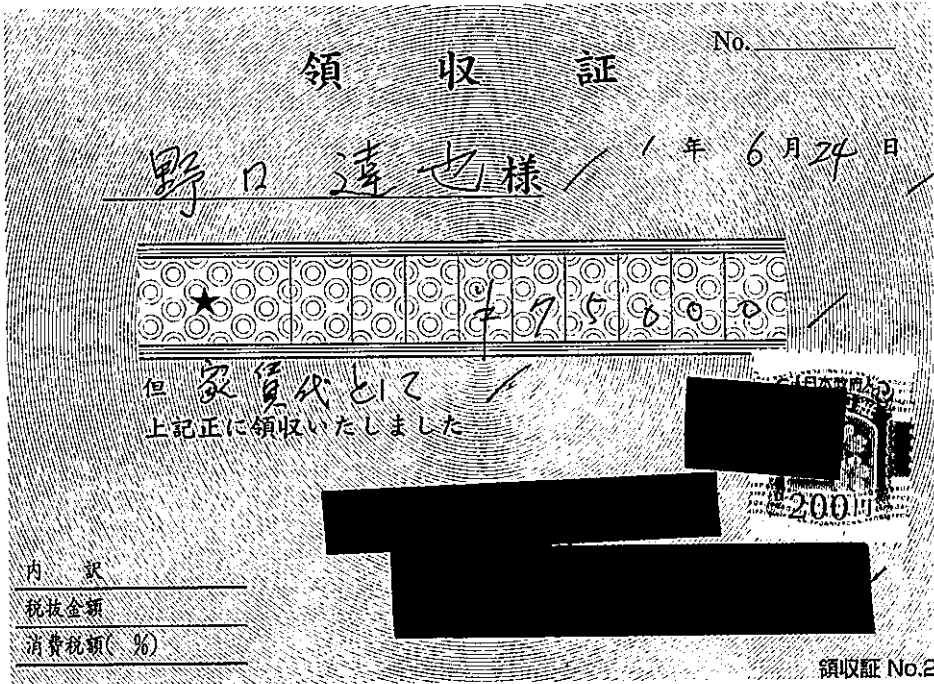 No.
領収証
野口達也様
1年6月24日
★ ¥75000
但 家賃代として
上記正に領収いたしました
日本政府
200円
内訳
税抜金額
消費税額( %)
領収証 No.2